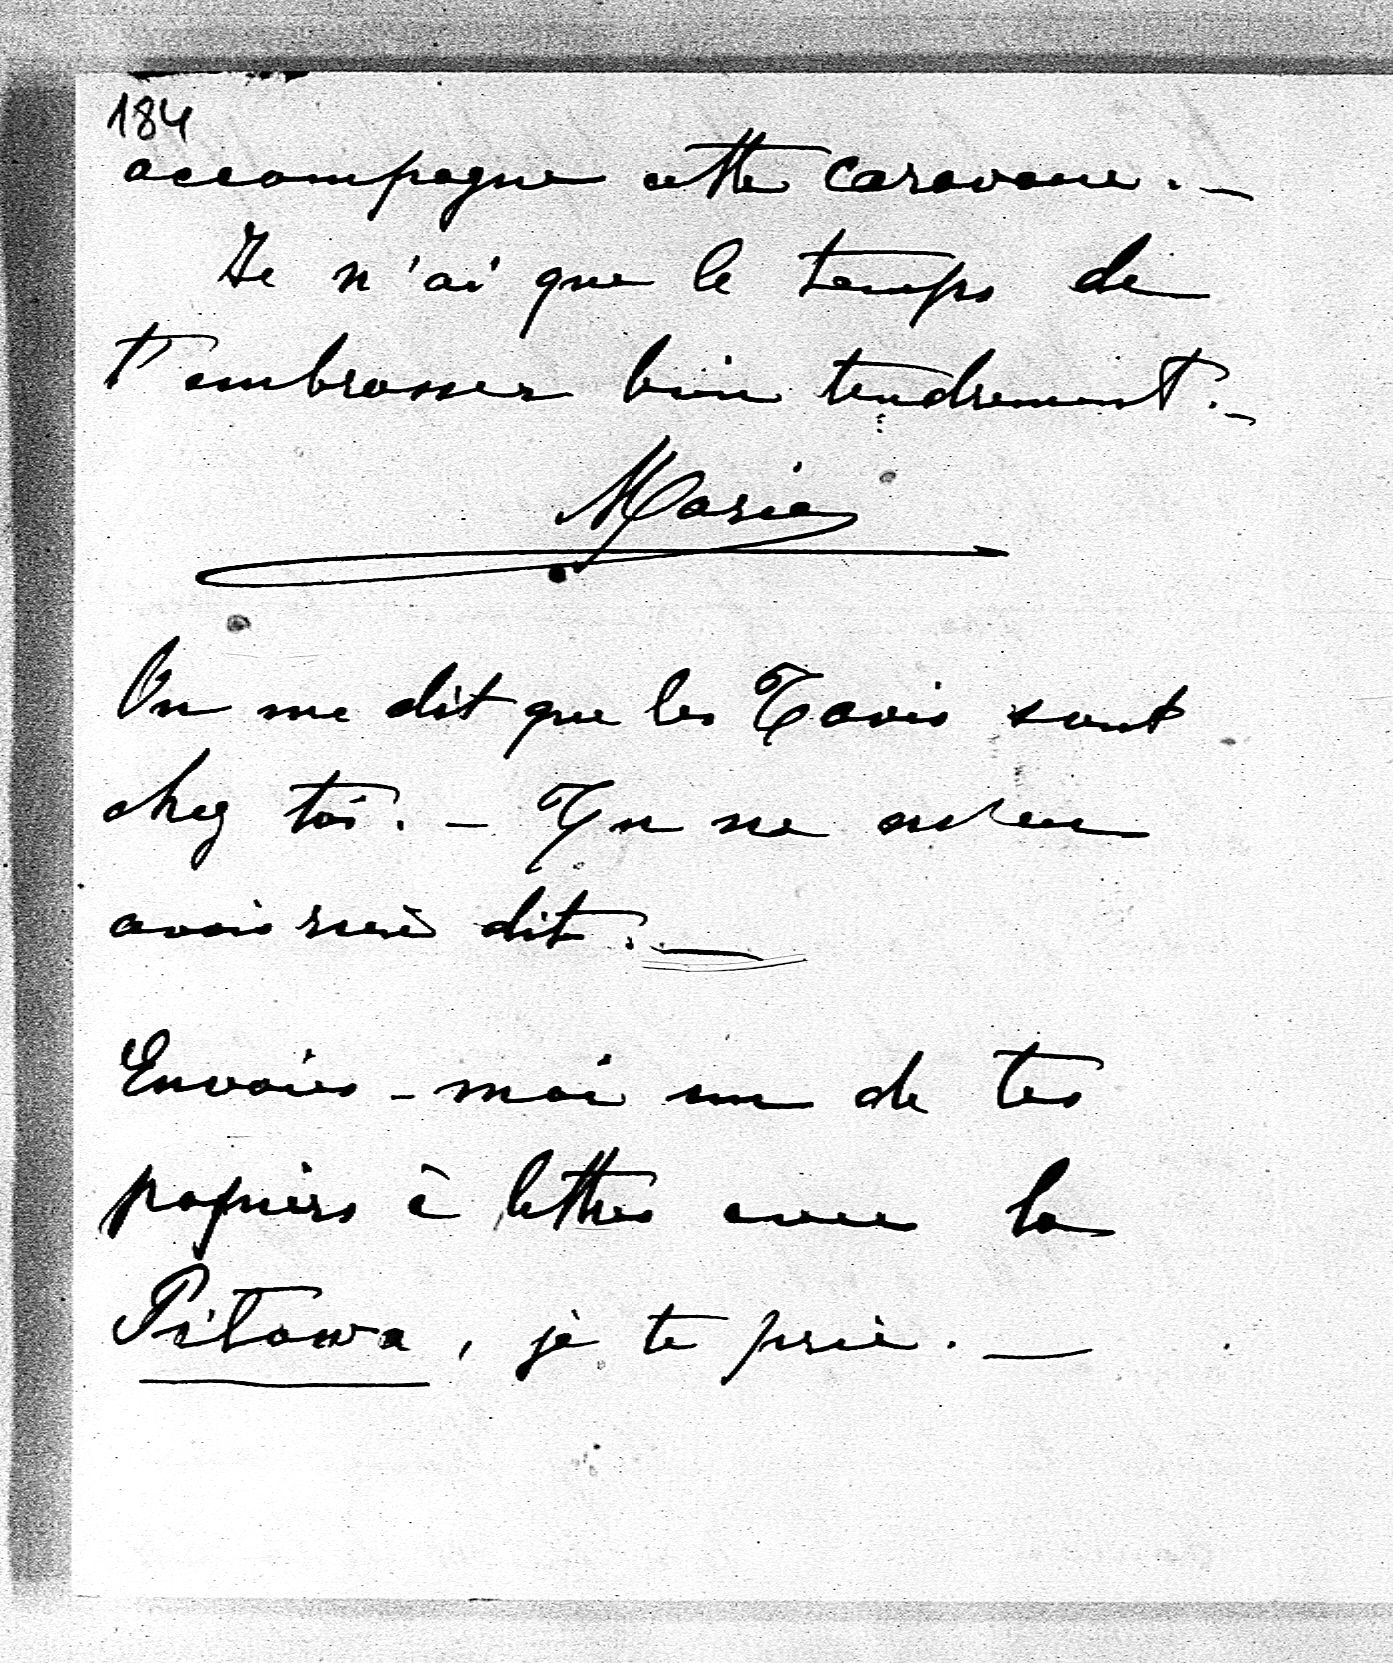 184
accompagne cette caravane. —
Je n'ai que le temps de
t'embrasser bien tendrement. —
Marie
On me dit que les Tavis sont
chez toi. — Tu ne m'en
avais rien dit. —
Envoies-moi un de tes
papiers à lettres avec la
Pitawa, je te prie. —